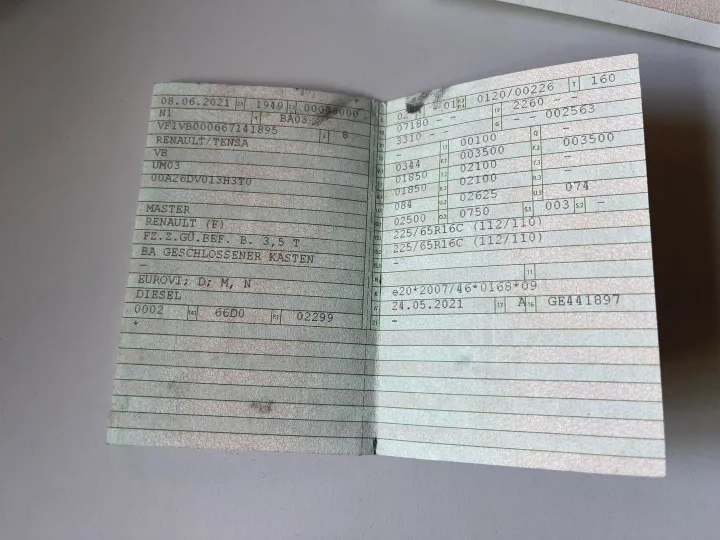 08.06.2021 1949
N1 BA03
VF1VB000667141895 6
RENAULT/TENSA
VB
UM03
00A26DV013H3T0
MASTER
RENAULT (F)
FZ.Z.GÜ.BEF. B. 3,5 T
BA GESCHLOSSENER KASTEN
-
EUROVI; D; M, N
DIESEL
0002 14.1 66D0 P.1 02299
*
0120/00226 T 160
07180 - - 2260 -
3310 - - G - - 002563
- 12 00100 Q -
0344 003500 F.2 003500
01850 02100 -
01850 02100 -
084 02625 U.3 074
02500 0750 S.1 003 S.2 -
225/65R16C (112/110)
225/65R16C (112/110)
-
11
e20*2007/46*0168*09
24.05.2021 17 A 16 GE441897
-